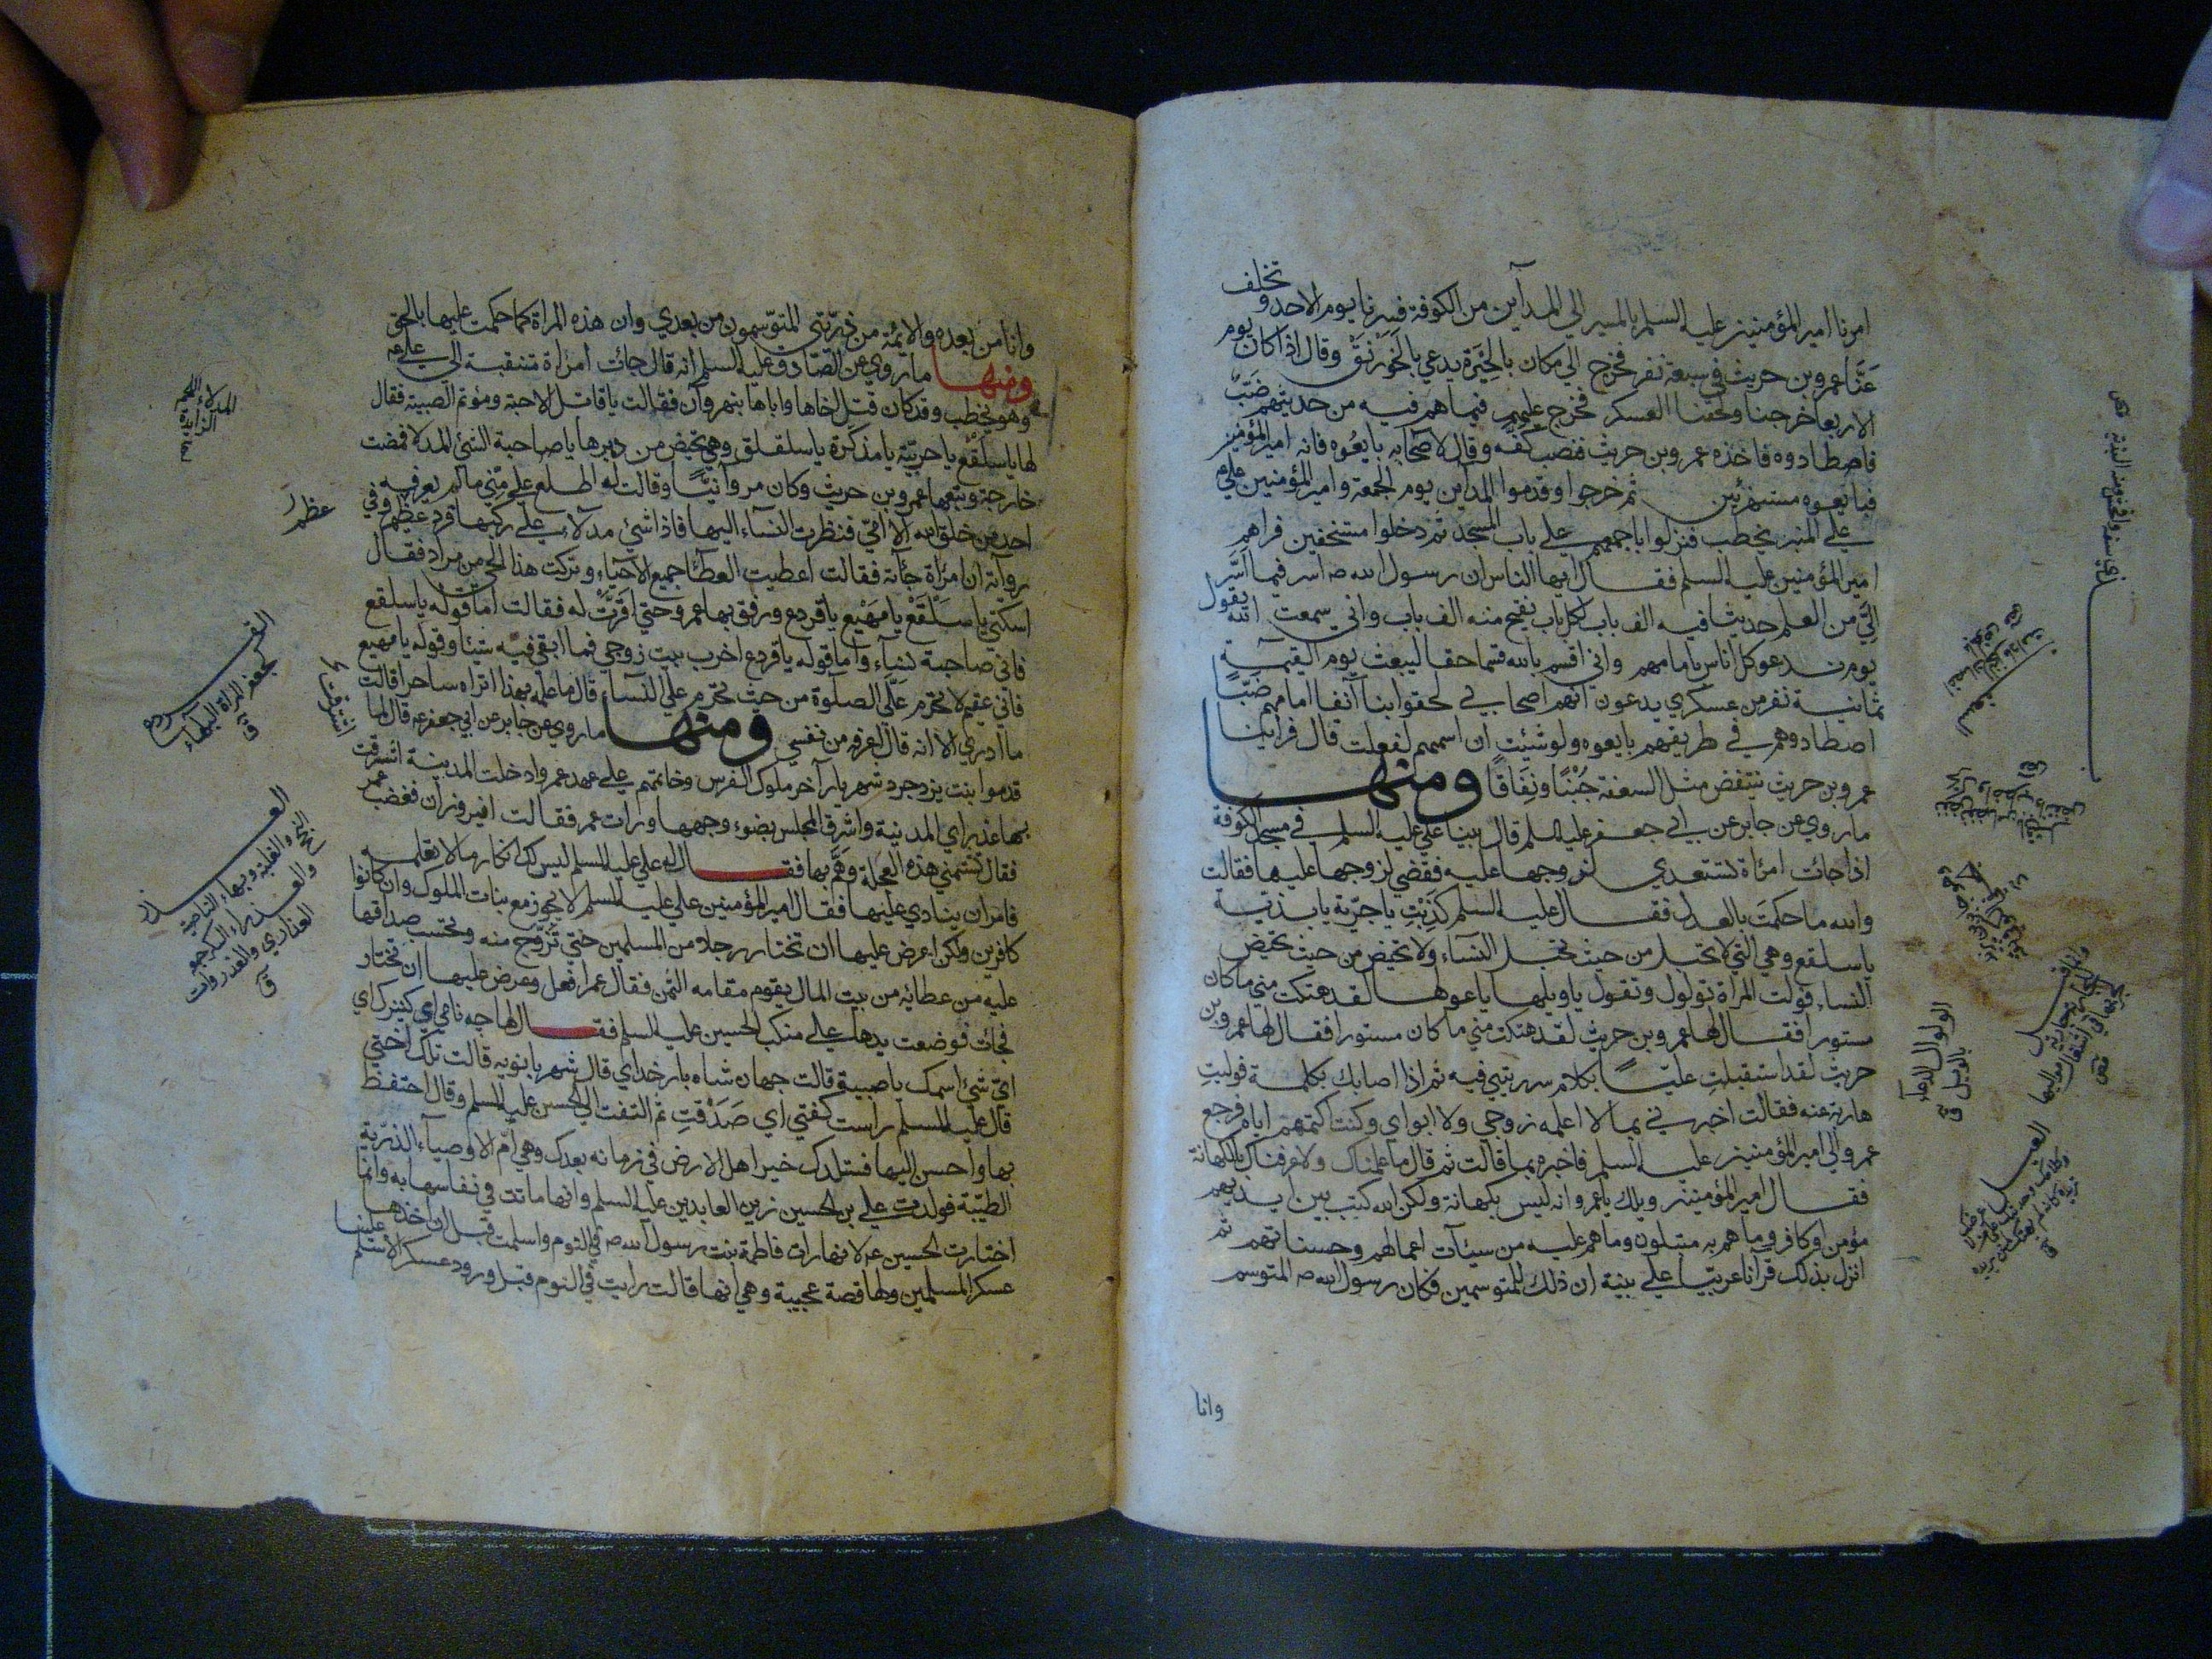 امرنا امير المؤمنين عليه السلم بالمسير الي المدآين من الكوفة فسرنا يوم الاحد و تخلف
عنَّا عمرو بن حريث في سبعة نفر فخرج الي مكان بالحِيَرة يدعي بالخَوَرْنَقْ وقال اذا كان يوم
الاربعا خرجنا ولحقنا العسكر فخرج عليهم فيما هم فيه من حديثهم ضَبّ
فاصطادوه فاخذه عمرو بن حريث فنصب كفّه وقال لاصحابه بايعُوه فانه امير المؤمنين
فبايعوه مستهزئين ثم خرجوا وقدموا المدآين يوم الجمعة وامير المؤمنين علي ع
علي المنبر يخطب فنزلوا باجمعهم علي باب المسجد ثم دخلوا مستخفين فراهم
امير المؤمنين عليه السلم فقال ايها الناس ان رسول الله ص اسر فيما اسَّر
اليَّ من العلم حديثا فيه الف باب لكل باب يفتح منه الف باب واني سمعت الله يقول
يوم ندعو كل اناس بامامهم واني اقسم بالله قسما حقا ليبعث يوم القيمة
ثمانية نفر من عسكري يدعون انهم اصحابي لحقوا بنا آنفا امامهم ضَبّا
اصطادوه في طريقهم بايعوه ولو شئت ان اسميهم لفعلت قال فراينا
عمرو بن حريث ينتفض مثل السعفة جُبْنًا ونِفَاقًا ومنها
ما روي عن جابر عن ابي جعفر عليه السلم قال بينا علي عليه السلم في مسجد الكوفة
اذا جائت امرٔاة تستعدي لزوجها عليه فقضي لزوجها عليها فقالت
والله ما حكمتَ بالعدل فقال عليه السلم كَذِبْتِ يا جرّية يا بذيّة
يا سلقع وهي التي لا تحبل من حيث تحبل النسآء ولا تحيض من حيث تحيض
النساء فولت المراة تولول وتقول يا ويلها يا عولها لقد هتكت مني ما كان
مستورا فقال لها عمرو بن حريث لقد هتكت مني ما كان مستورا فقال لها عمرو بن
حريث لقد استقبلتِ عليّا بكلام سررتيني فيه ثم اذا اصابك بكلمة فوليتِ
هاربة عنه فقالت اخبرني بما لا اعلمه زوجي ولا ابواي وكنت اكتمهم اياه فرجع
عمرو الي امير المؤمنين عليه السلم فاخبره بما قالت ثم قال ما علمناك ولا عرفناك بالكهانة
فقال امير المؤمنين ويلك يا عمرو انه ليس بكهانة ولكن الله كتب بين ايديهم
مؤمن او كافر وما هم به مبتلون وما هم عليه من سيئآت اعمالهم وحسناتهم ثم
انزل بذلك قرآنا عربيّا علي نبيه ان ذلك للمتوسمين فكان رسول الله ص المتوسم
وانا
الولوال الدعآء
بالويل ق
وانا من بعده والايمّة من ذرّيّتي المتوّسمون من بعدي وان هذه المراة كما حكمت عليها بالحق
ومنها ما روي عن الصّادق عليه السلم انه قال جائت امراة متنقبة الي علي ع
وهو يخطب وقد كان قتل اخاها واباها بنهروان فقالت يا قاتل الاحبّة ومؤتم الصبية فقال
لها يا سلَقْع يا جريّة يا مذكرة يا سلقلق وهي تحيض من دبرها يا صاحبة الشئ المدلا فمضت
خارجة وتبعها عمرو بن حريث وكان مروآنيّا وقالت له اطلع علي مِنّي ما لم يعرفه
احد من خلق الله الا امّي فنظرت النسآء اليها فاذا شئ مدلآت علي ركبها قرد عظيم وفي
رواية ان امرٔاة جآئة فقالت اعطيت العطآ جميع الاحيآء وتركت هذا الحي من مراد فقال
اسكتي يا سَلْقَعْ يا مَهْيع يا قردع ورفق بها عمرو حتي اقرّتْ له فقالت اما قوله يا سلقع
فاني صاحبة نسآء واما قوله يا قردع اخرب بيت زوجي فما ابقي فيه شيئا وقوله يا مهيع
فاني عقيم لا يحرم علَّي الصلوة من حيث تحرم علي النسآء قال ما علمه بهذا اتراه ساحرا قالت
ما ادري الا انه قال اعرفه من نفسي ومنها ما روي عن جابر عن ابي جعفر ع قال لما
قدموا بنت يزدجرد شهريار آخر ملوك الفرس وخاتمتهم علي عهد عمر وادخلت المدينة اشرقت
بها عذراي المدينة واشرق المجلس بضوء وجهها ورات عمر فقالت افيروزان فغضب عمر
فقال شتمتني هذه العجلة وهَمَّ بها فقال له علي عليه السلم ليس لك انكار ما لا تعلمه
فامر ان ينادي عليها فقال امير المؤمنين علي عليه السلم لا يجوز مع بنات الملوك وان كانوا
كافرين ولكن اعرض عليها ان تختار رجلا من المسلمين حتي تُزوّج منه وتحتسب صداقها
عليه من عطائه من بيت المال يقوم مقامه الثمن فقال عمر افعل وعرض عليها ان تختار
فجات فوضعت يدها علي منكب الحسين عليه السلم فقال لها چه نامي اي كنيزك اي
ايّ شئ اسمك يا صبيية قالت جهان شاه بار خداي قال شهر بانويه قالت تلك اختي
قال عليه السلم راست كفتي اي صَدَقْتِ ثم التفت الي الحسين عليه السلم وقال احتفظ
بها واحسن اليها فستلدك خير اهل الارض في زمانه بعدك وهي امّ الاوصياء الذرّية
الطيّبة فولدت علي بن الحسين زين العابدين عليه السلم وانها ماتت في نفاسها به وانما
اختارت الحسين ع لانها رات فاطمة بنت رسول الله ص في النوم واسلمت قبل ان اخذها
عسكر المسلمين ولها قصة عجيبة وهي انها قالت رايت في النوم قبل ورود عسكر الاسلم علينا
عظم
اشرقت